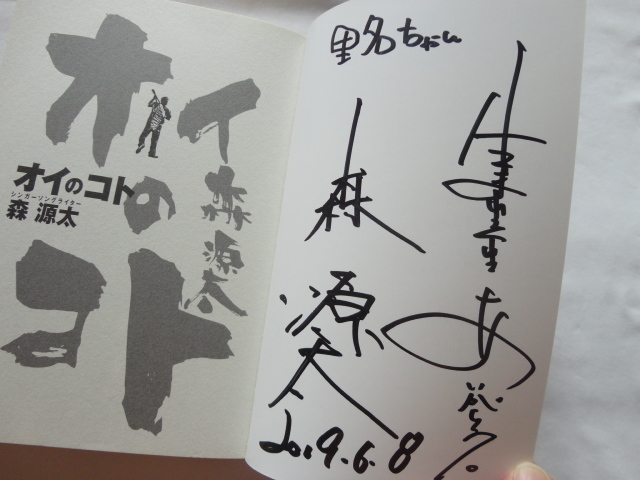 オイの
コト
森源太
オイのコト
シンガーソングライター
森 源太
里名ちゃん
森
源太
2019.6.8